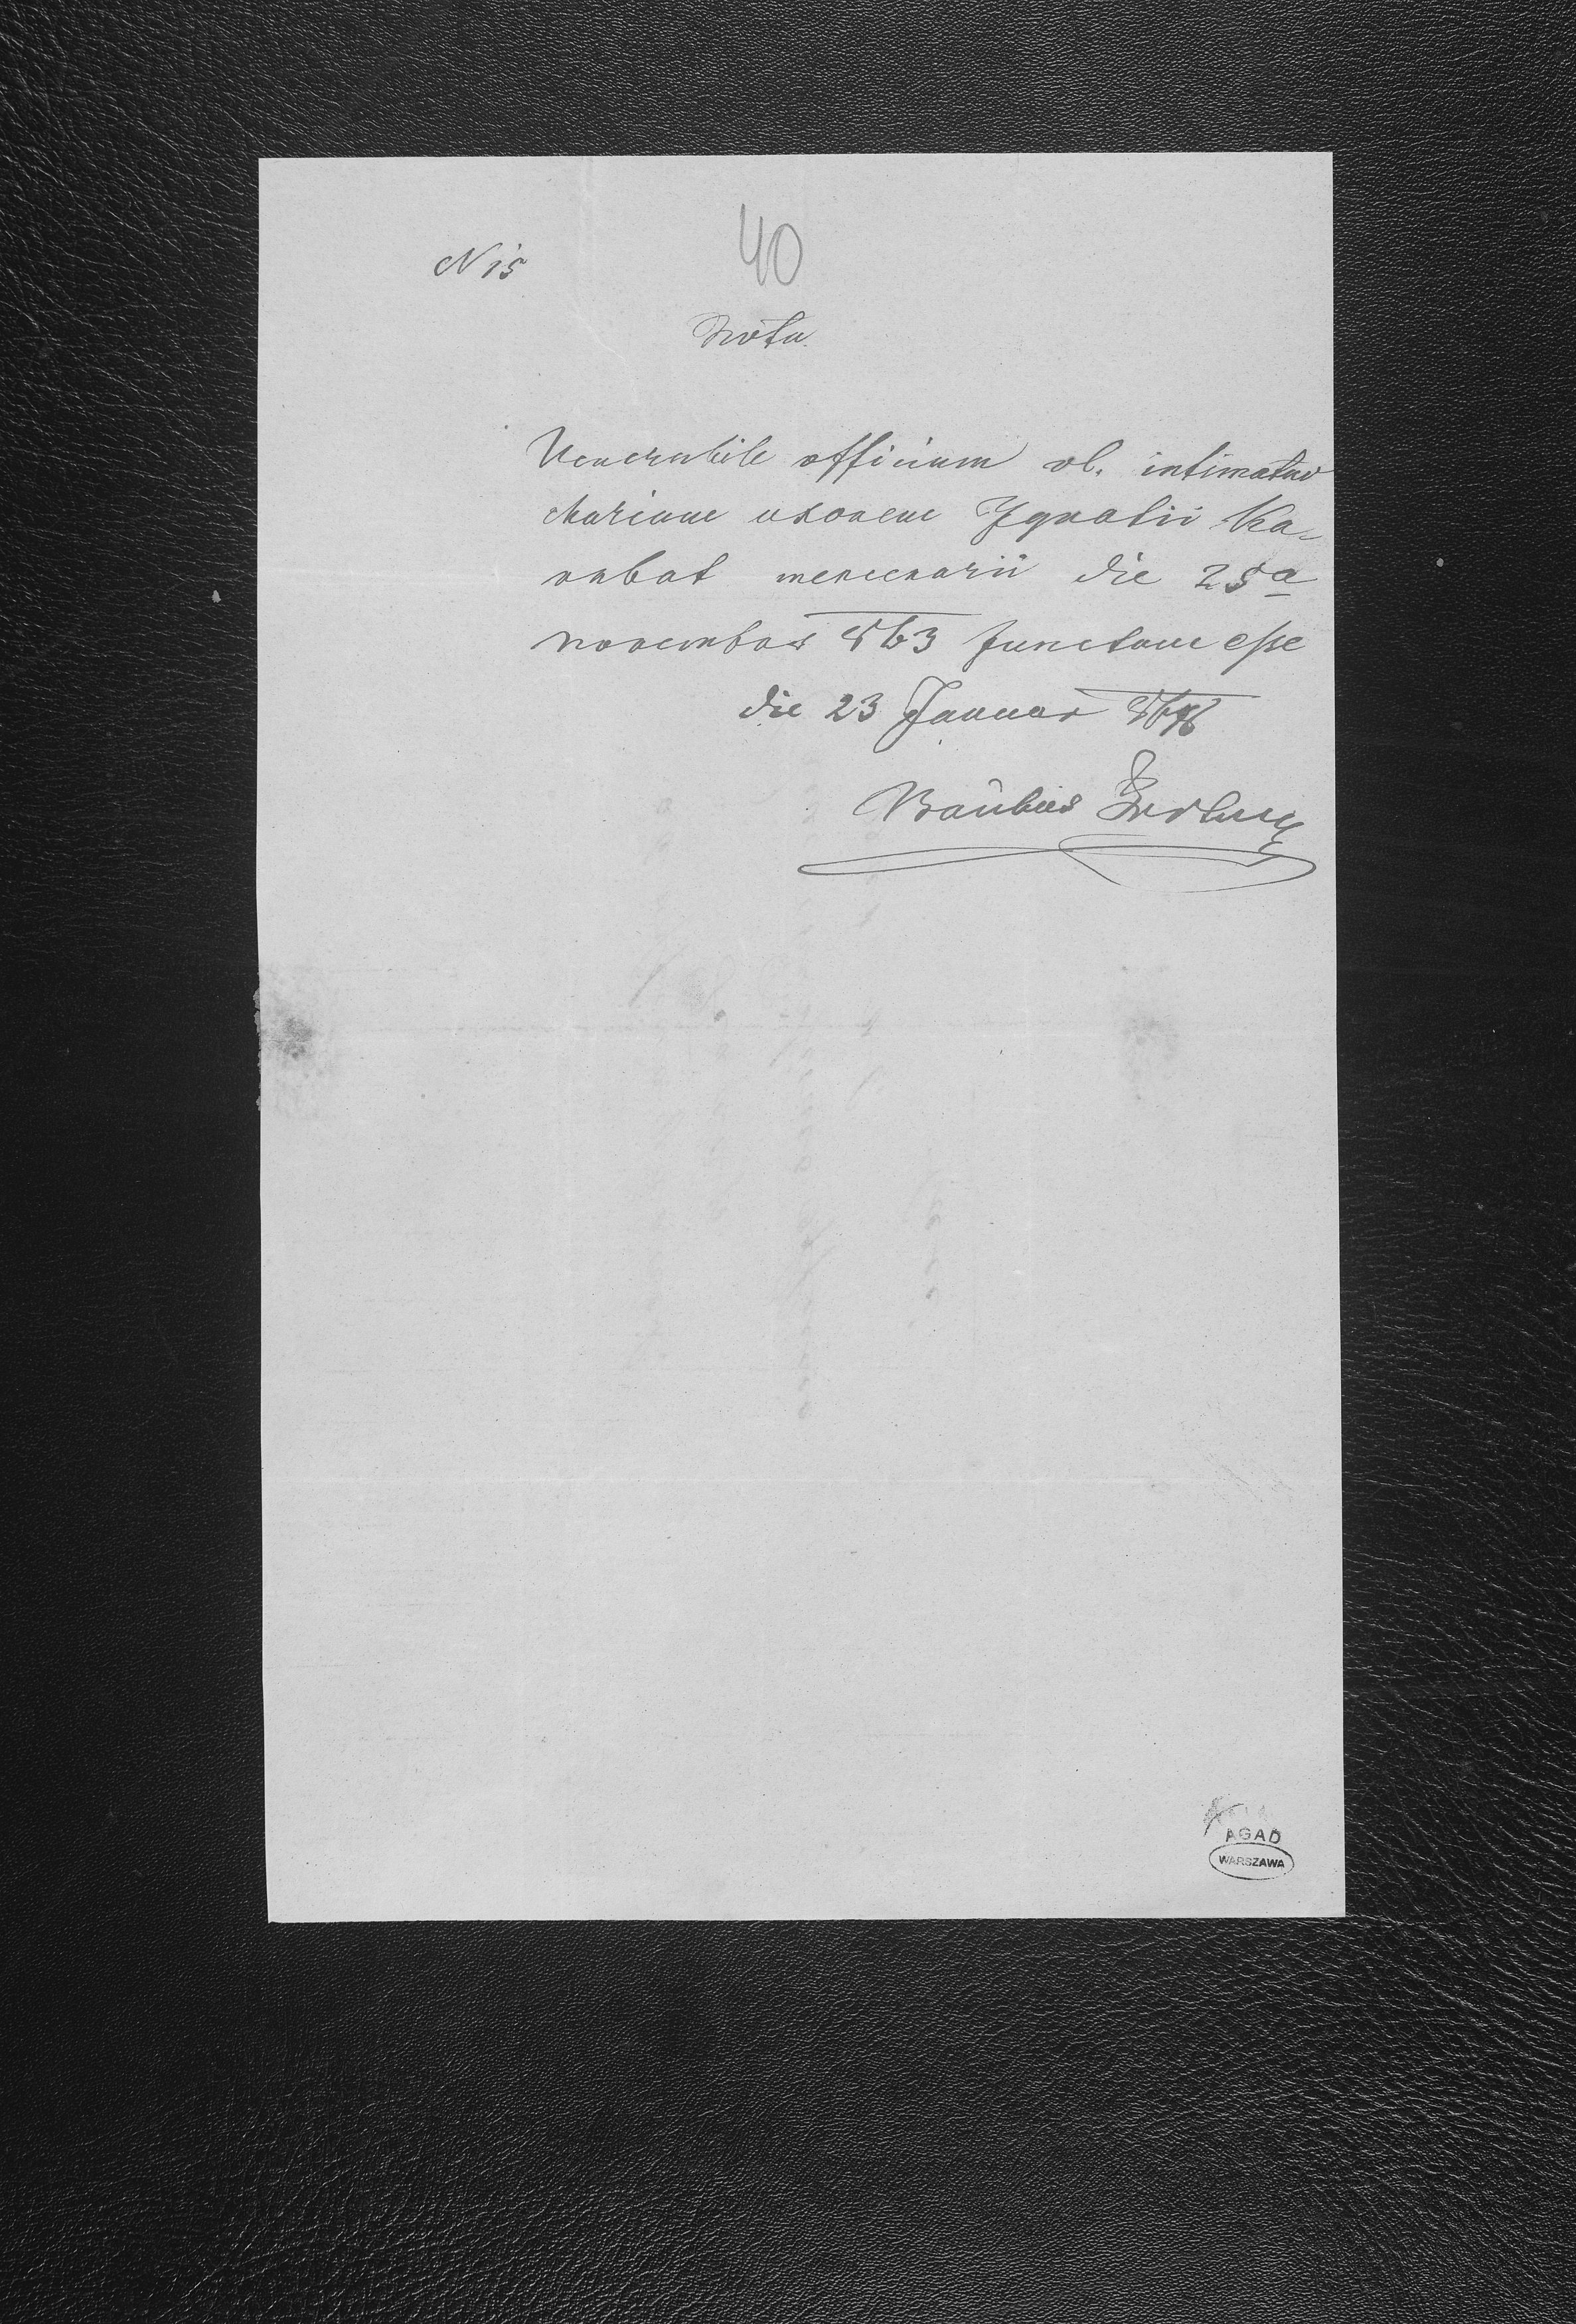 N 15
40
Nota.
Venerabile officium ob. intimatur
Mariane uxorem Ignatii Ka-
mercenarii die 25a
November 863 functam esse
die 23 Januar
AGAD
WARSZAWA